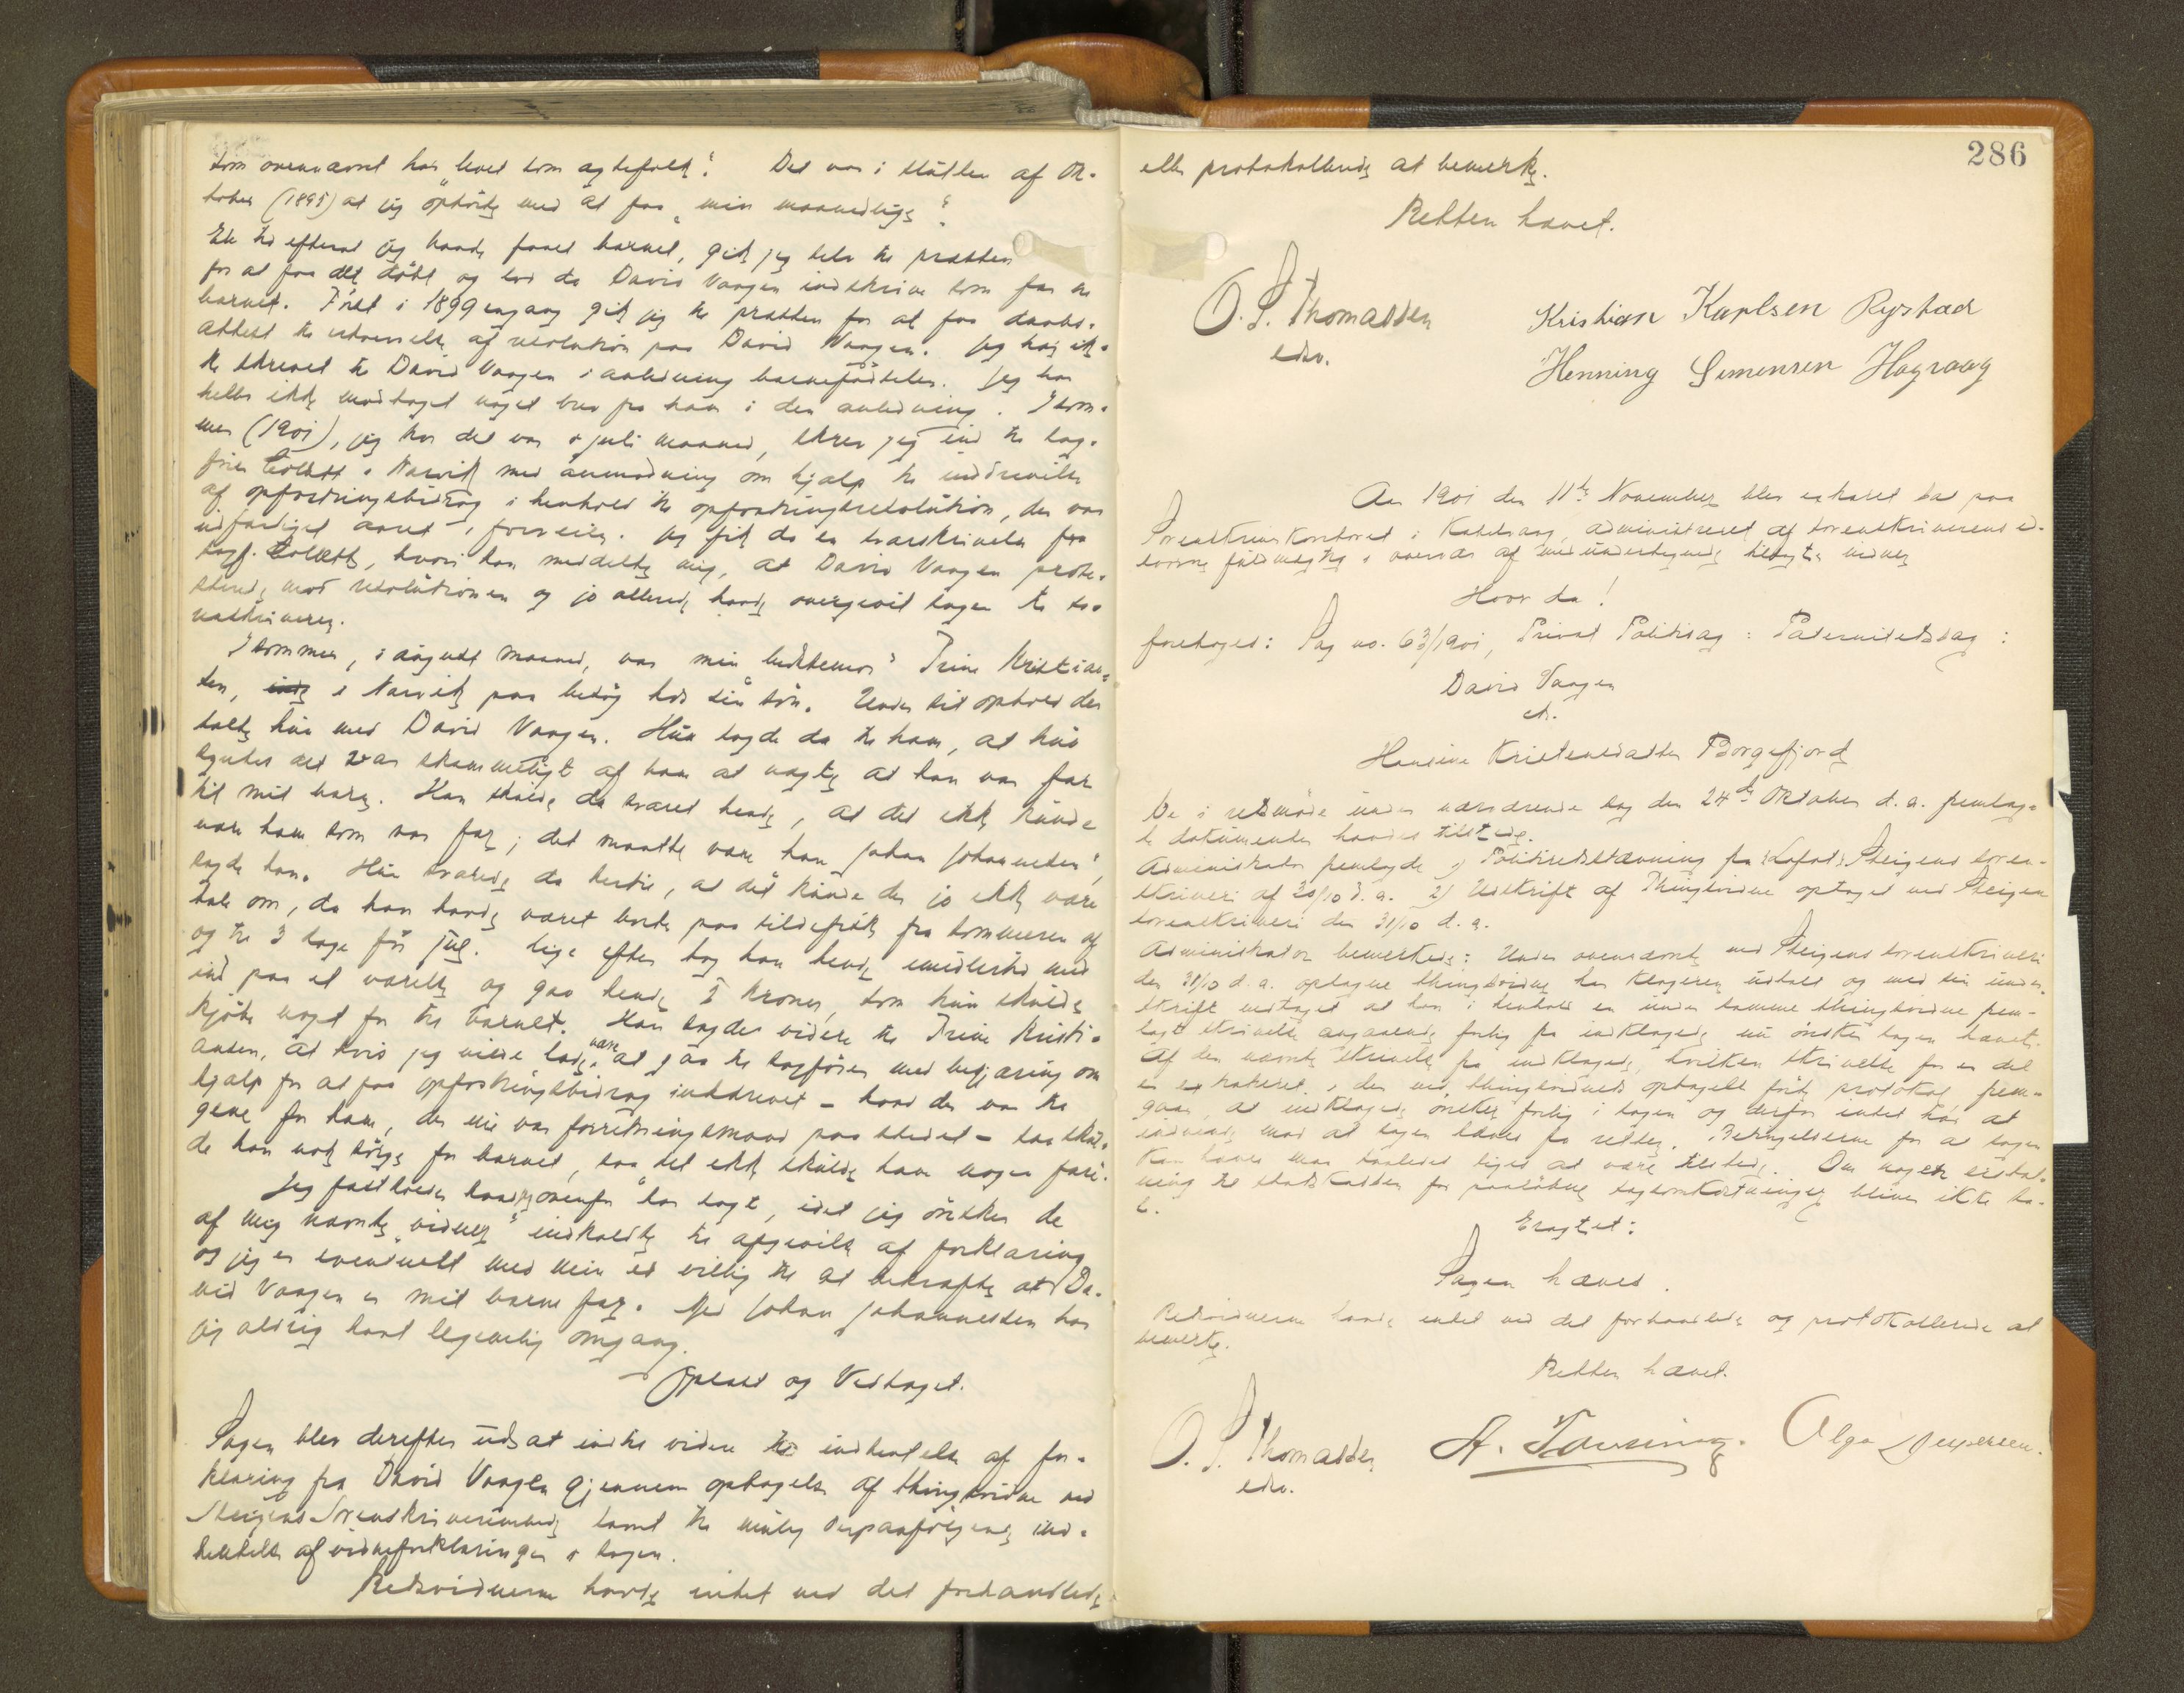 som ovennævnt har levet som ægtefolk". Det var i slutten af Ok-
tober (1895) at jeg ophørte med at faa "min maanedlige".
En tid efterat jeg havde faaet barnet, gik jeg selv til præsten
for at faa det døbt og lod da David Vaagen indskrive som far til
barnet. Først i 1899 engang gik jeg til præsten for at faa daabs-
attest til udvirkelse af resolution paa David Vaagen. Jeg har ik-
ke skrevet til David Vaagen i anledning barnefødselen. Jeg har
heller ikke modtaget noget brev fra ham i den anledning. I som-
mer (1901), jeg tror det var i juli maaned, skrev jeg ind til sag-
fører Collett i Narvik med anmodning om hjælp til inddrivelse
af opfostringsbidrag i henhold til opfostringsresolution, der var
udfærdiget aaret i forveien. Jeg fik da en svarskrivelse fra
sagf. Collett, hvori han meddelte mig, at David Vaagen prote-
sterede mod resolutionen og jo allerede havde overgivet sagen til so-
renskriveren.
I sommer, i august maaned, var min bedstemor" Trine Kristian-
sen, i Narvik paa besøg hos sin søn. Under sit ophold der
talte hun med David Vaagen. Hun sagde da til ham, at hun
syntes det var skammeligt af ham at nægte at han var far
til mit barn. Han skulde da svaret hende, at det ikke kunde
være ham som var far; det maatte være han Johan Johannesen",
sagde han. Hun svarede da hertil, at det kunde der jo ikke være
tale om, da han havde været borte paa sildefiske fra sommeren af
og til 3 dage før jul. Lige efter tog han hende imidlertid med
ind paa et værelse og gav hende 2 kroner, som hun skulde
kjøbe noget for til barnet. Han sagde videre til Trine Kristi-
ansen, at hvis jeg vilde lade være at gaa til sagfører med begjæring om
hjælp for at faa opfostringsbidrag inddrevet – hvad der var til
gene for ham, der nu var forretningsmand paa stedet – saa skul-
de han nok sørge for barnet, saa det ikke skulde have nogen fare.
Jeg fastholder hvad jeg ovenfor har sagt, idet jeg ønsker de
af mig nævnte "vidner" indkaldte til afgivelse af forklaring
og jeg er eventuelt med min ed villig til at bekræfte at Da-
vid Vaagen er mit barns far. Med Johan Johannesen har
jeg aldrig havt legemlig omgang.
Oplæst og Vedtaget.
Sagen blev derefter udsat indtil videre til indhentelse af for-
klaring fra David Vaagen gjennem optagelse af thingsvidne ved
Steigens Sorenskriverembede samt til mulig derpaafølgende ind-
hentelse af vidneforklaringer i sagen.
Retsvidnerne havde intet ved det forhandlede
286
eller protokollerede at bemerke.
Retten hævet.
O. S. Thomassen
edsv.
Kristian Karlsen Rystad
Henning Simensen Hagvaag
Aar 1901 den 11te November blev extraret sat paa
Sorenskriverkontoret i Kabelvaag, administreret af sorenskriverens ed-
svorne fuldmægtig i overvær af medundertegnede tilsagte vidner
Hvor da!
foretoges: Sag no. 63/1901, Privat Politisag: Paternitetssag:
David Vaagen
ctr.
Hansine Kristensdatter Borgefjord
De i retsmøde under nærværende sag den 24de Oktober d.a. fremlag-
te dokumenter havdes tilstede.
Administrator fremlagde 1) Politiretsstævning fra Lofot Steigens soren-
skriveri af 20/10 d.a. 2) Udskrift af Thingsvidne optaget ved Steigen
sorenskriveri den 31/10 d.a.
Administrator bemerkede: Under ovennævnte ved Steigens sorenskriveri
den 31/10 d.a. optagne thingsvidne har klageren udtalt og med sin under-
skrift vedtaget at han i henhold en under samme thingsvidne frem-
lagt skrivelse angaaende forlig fra indklagede nu ønsker sagen hævet.
Af den nævnte skrivelse fra indklagede, hvilken skrivelse for en del
er extraheret i den ved thingsvidnets optagelse førte protokol, frem-
gaar, at indklagede ønsker forlig i sagen og derfor intet har at
indvende mod at sagen hæves fra retten. Betingelserne for at sagen
kan hæves maa saaledes siges at være tilstede. Om nogen erstat-
ning til statskassen for paaløbne sagsomkostninger bliver ikke ta-
le.
Eragtet:
Sagen hæves.
Retsvidnerne havde intet ved det forhandlede og protokollerede at
bemerke.
Retten hævet.
O. S. Thomassen
edsv.
A. Tousing.
Olga Jespersen.